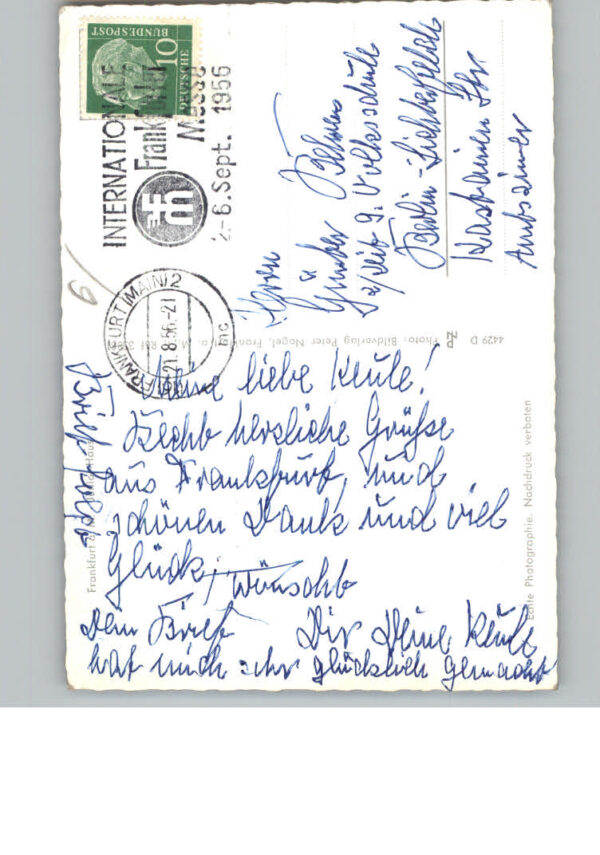 DEUTSCHE
BUNDESPOST
10
INTERNATIONALE
Frankfurter
Messe
2.-6. Sept. 1956
FRANKFURT (MAIN) 2
21.8.56.-21
mc
9
Herrn
Günter
9. Volksschule
Berlin-Lichtefelde
4429 D
Photo: Bildverlag Peter Nagel, Frankfurt
Meine liebe Keule!
Recht herzliche Grüße
aus Frankfurt, und
schönen Dank und viel
Glück, wünscht
Dir Deine Keule
Dein Brief
hat mich sehr glücklich gemacht
Brief folgt
Frankfurt a. M.
Echte Photographie. Nachdruck verboten